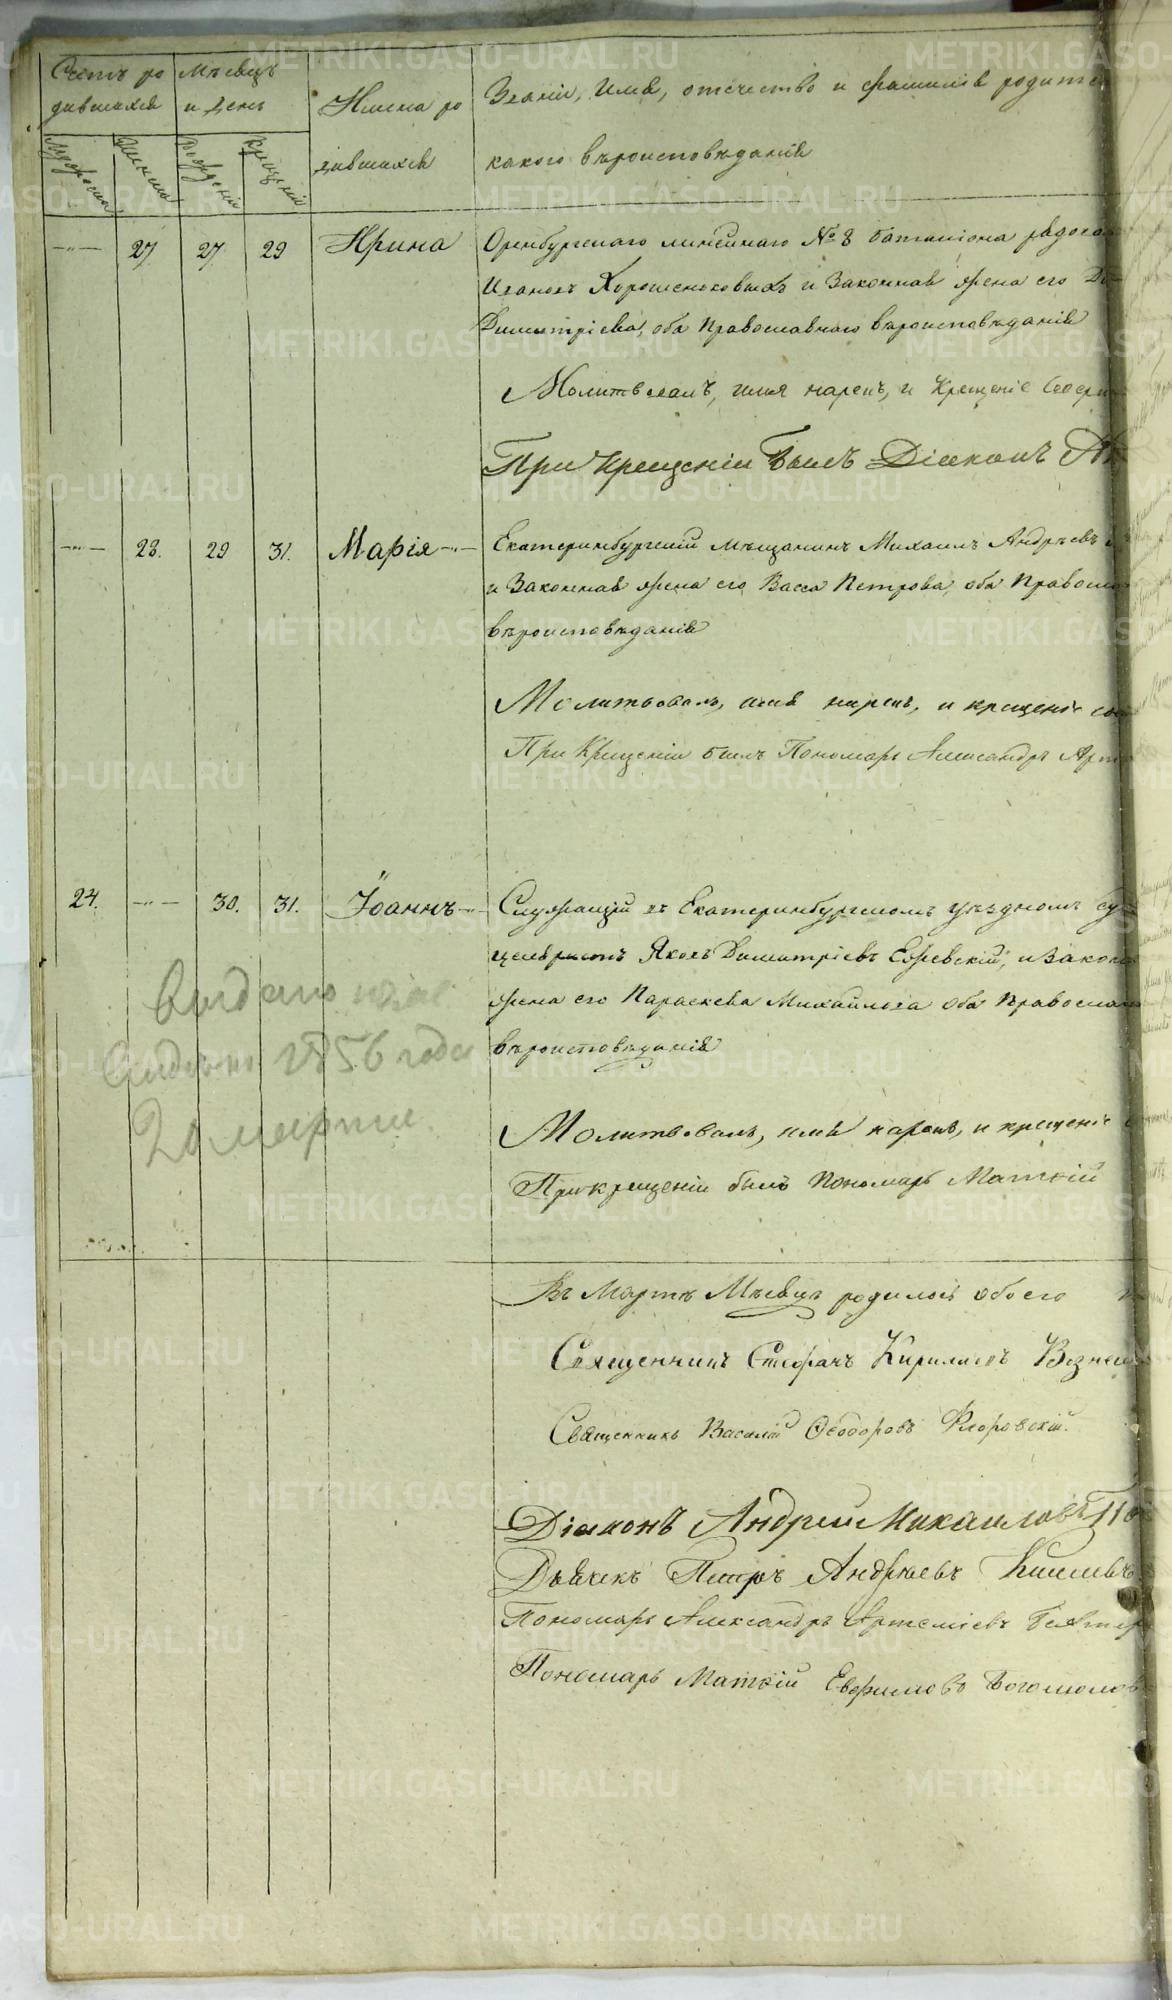 Счетъ ро
дившихся
Мѣсяцъ
и день
Имена ро
дившихся
Званіе, имя, отечество и фамилія родите
какого вѣроисповѣданія
Мужеска
Женска
Рожденія
Крещенія
27 27 29 Ирина Оренбургскаго линейнаго № 8 баталіона рядова
и Законная жена его
Димитріева, оба Православнаго вѣроисповѣданія
Молитвовалъ, имя нарекъ, и Крещеніе Совер
При крещеніи былъ Діаконъ
28. 29 31. Марія Екатеринбургскій мѣщанинъ Михаилъ Андрѣевъ
и Законная жена его Васса Петрова, оба Правосла
вѣроисповѣданія
Молитвовалъ, имя нарекъ, и крещеніе со
При Крещеніи былъ Пономарь Александръ Арт
24. 30. 31. Іоаннъ Служащій въ Екатеринбургскомъ уѣздномъ су
Яковъ Димитріевъ и Закон
жена его Параскева Михайлова оба Правосла
вѣроисповѣданія
Молитвовалъ, имя нарекъ, и крещеніе
При крещеніи былъ Пономарь Матѳій
1856 года
20 марта.
Въ Мартѣ Мѣсяцѣ родилось обоего
Священникъ Стефанъ Кириловъ Вознес
Священникъ Василій Ѳеодоровъ Флоровскій.
Діаконъ Андрей Михаиловъ По
Дьячекъ Петръ Андреевъ Киселевъ
Пономарь Александръ Артеміевъ
Пономарь Матѳій Евфимовъ Богомолов
METRIKI.GASO-URAL.RU